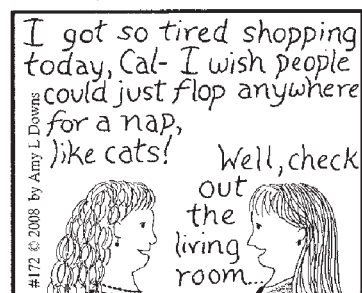 I got so tired shopping
today, Cal- I wish people
could just flop anywhere
for a nap,
like cats!
Well, check
out
the
living
room...
#172 © 2008 by Amy L Downs